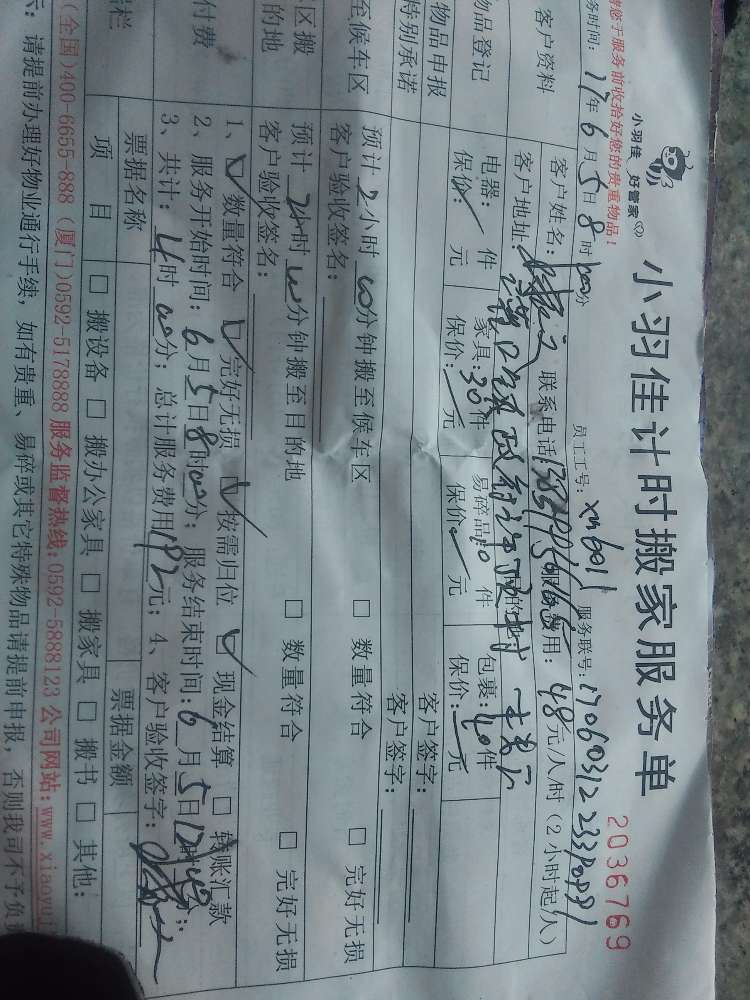 小羽佳计时搬家服务单
2036769
小羽佳 好管家
请您于服务前收拾好您的贵重物品！
员工工号：xm6011 服务联号：
务时间：17年6月5日8时00分
客户资料 客户姓名： 联系电话 服务费用：48元/人/时（2小时起/人）
客户地址：
物品登记 电器： 件 家具：30件 易碎品10件 包裹：40件
保价： 元 保价： 元 保价： 元 保价： 元
物品申报
特别承诺 客户签字：
至候车区 预计2小时00分钟搬至候车区 □ 数量符合 □ 完好无损
客户验收签名： 客户签字：
区搬
的地 预计2小时00分钟搬至目的地 □ 数量符合 □ 完好无损
客户验收签名：
付费 1、 数量符合 完好无损 按需归位 现金结算 □ 转账汇款
2、服务开始时间：6月5日8时00分；服务结束时间：6月5日12时00分；
3、共计：4时00分；总计服务费用192元；4、客户验收签字：
栏 票据名称 票据金额
项目 □ 搬设备 □ 搬办公家具 □ 搬家具 □ 搬书 □ 其他：
(全国)400-6655-888 (厦门)0592-5178888 服务监督热线:0592-5888123 公司网站:www.xiaoyuj
示：请提前办理好物业通行手续，如有贵重、易碎或其它特殊物品请提前申报，否则我司不予负